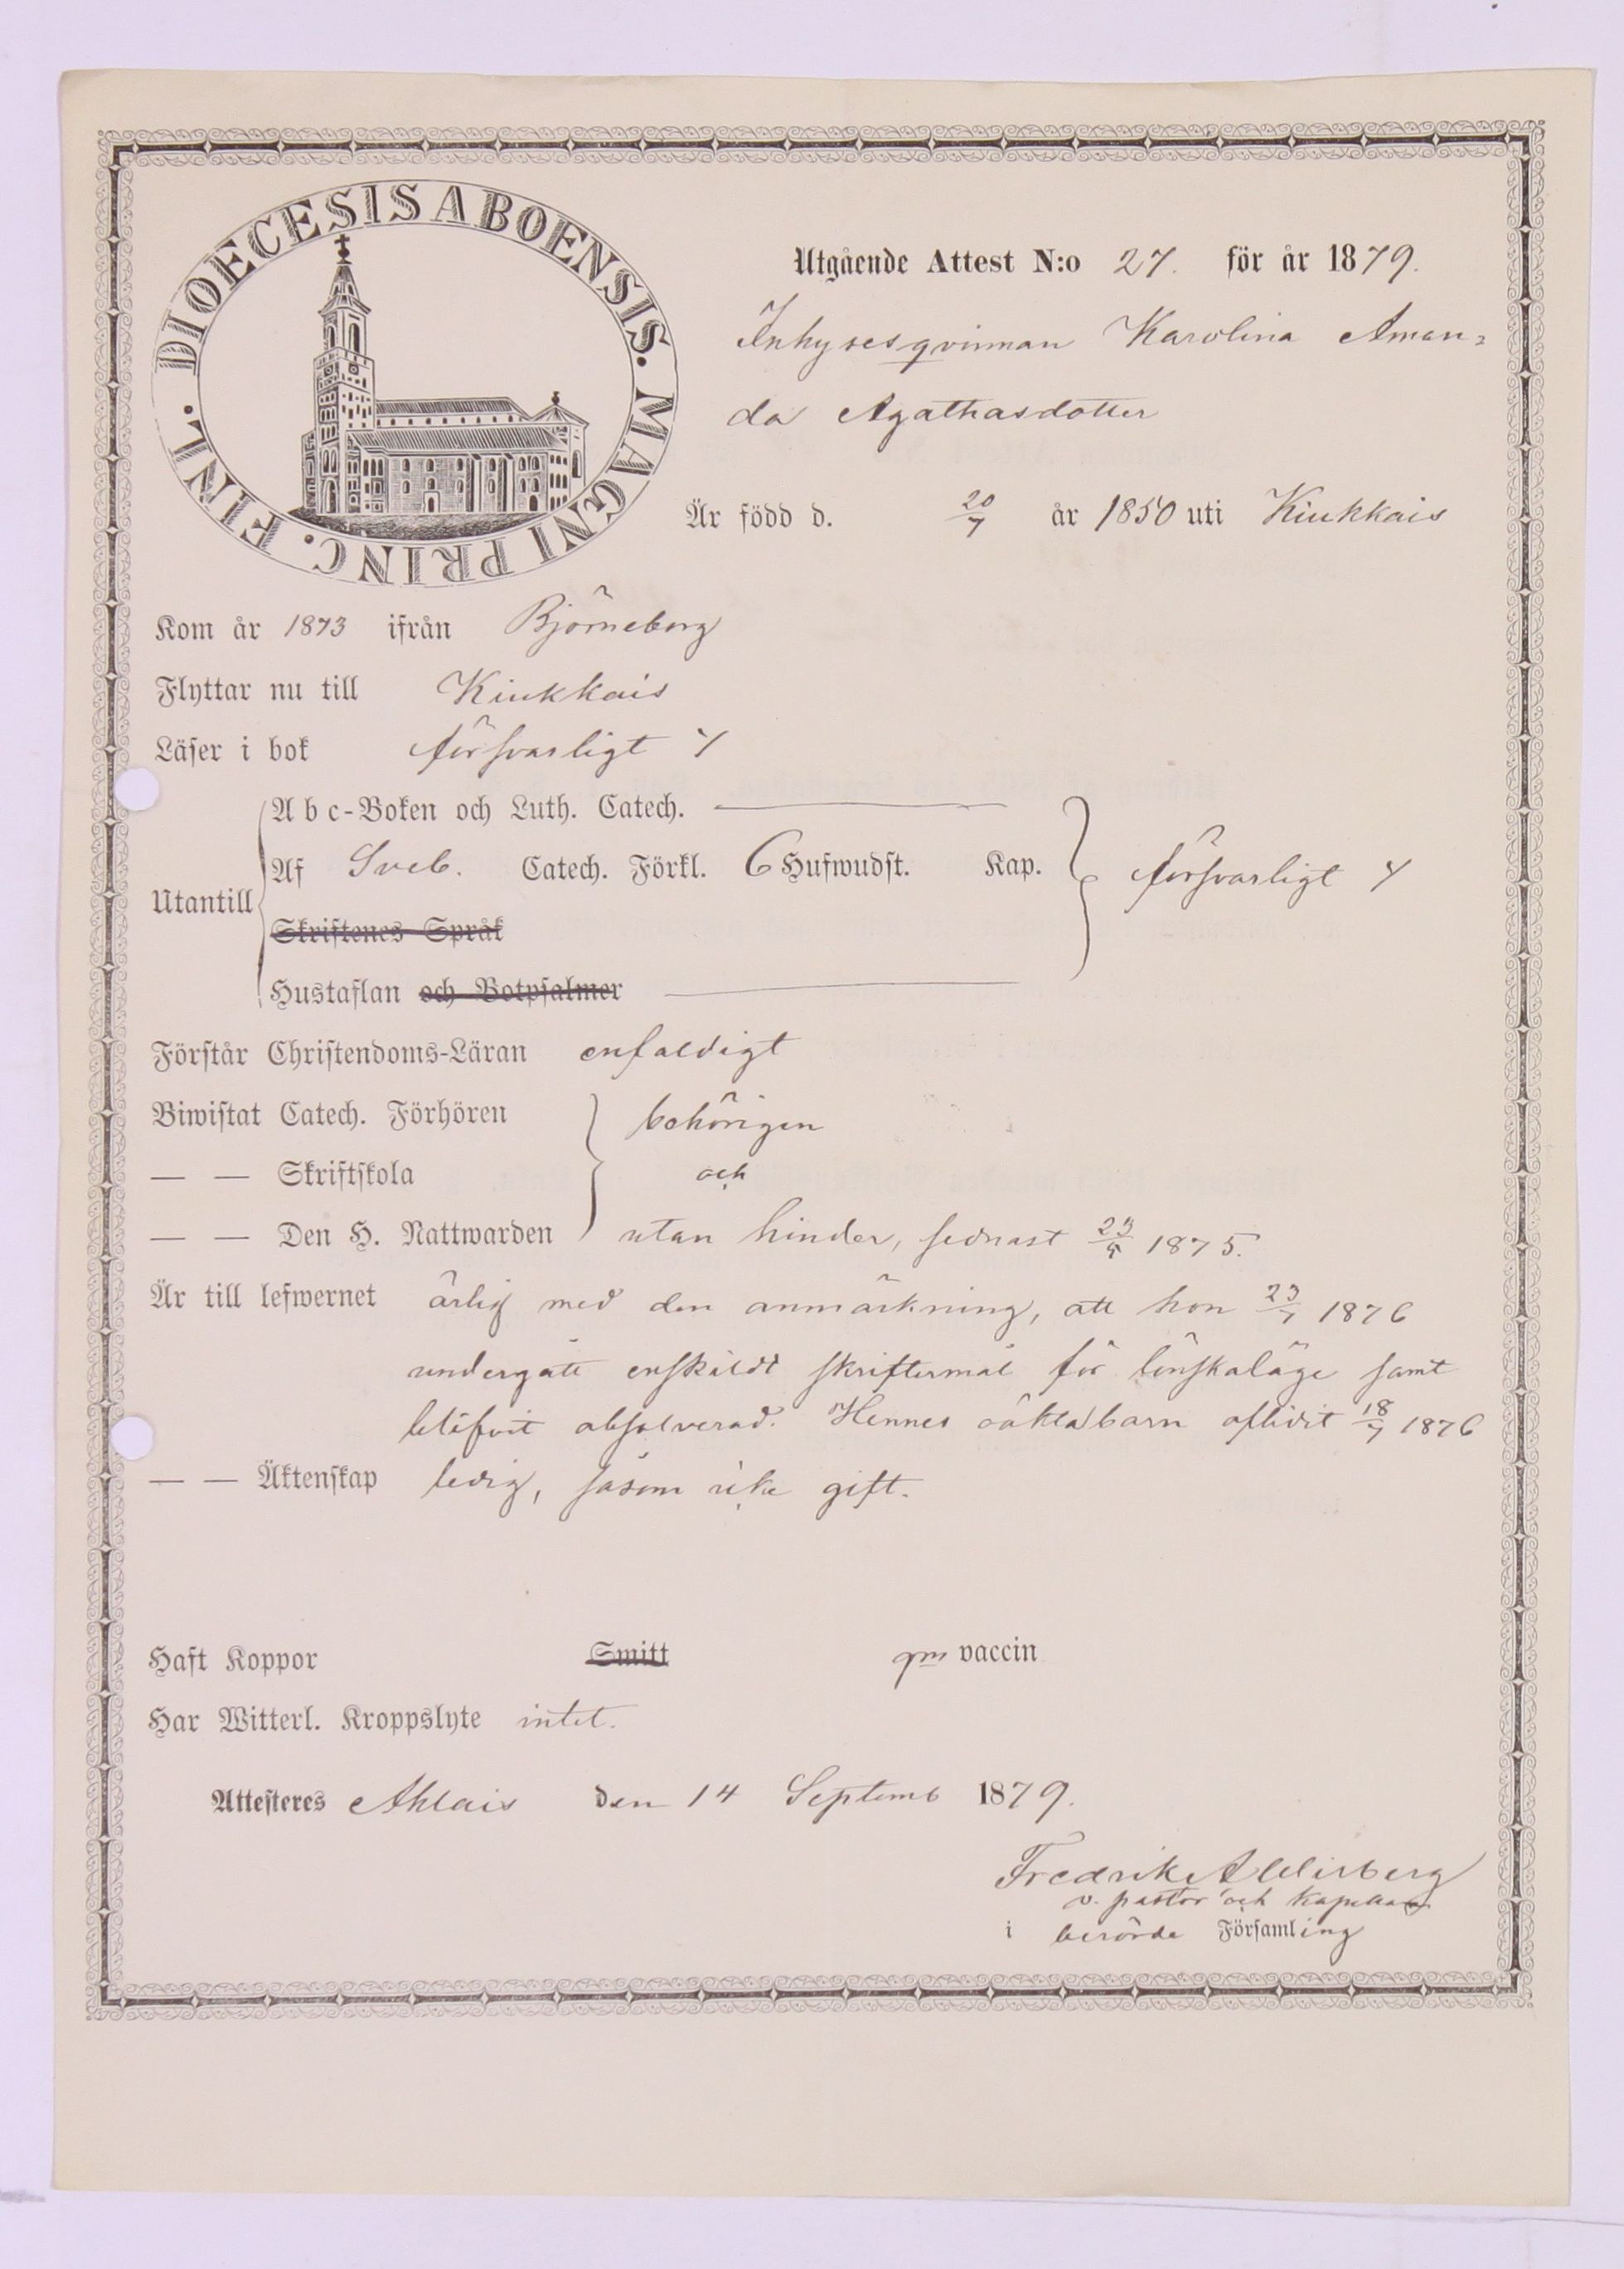 DIOECESIS ABOENSIS. MAGNI PRINC. FINL.
Utgående Attest N:o 27. för år 1879.
Inhysesqvinnan Karolina Aman=
da Agathasdotter
Är född d. 20/7 år 1850 uti Kiukkais
Kom år 1873 ifrån Björneborg
Flyttar nu till Kiukkais
Läser i bok försvarligt
A b c-Boken och Luth. Catech.
Af Sveb. Catech. Förkl. 6 Hufwudst. Kap. försvarligt
Utantill
Skriftenes Språk
Hustaflan och Botpsalmer
Förstår Christendoms-Läran enfaldigt
Biwistat Catech. Förhören behörigen
— — Skriftskola och
— — Den H. Nattwarden utan hinder, sednast 1875.
Är till lefwernet ärlig med den anmärkning, att hon 23/7 1876
undergått enskildt skriftermål för lönskaläge samt
blifvit absolverad. Hennes oäkta barn aflidit 18/7 1876
— — Äktenskap ledig, såsom icke gift.
Haft Koppor Smitt gm vaccin
Har Witterl. Kroppslyte intet.
Attesteres Ahlais den 14 Septemb 1879.
Fredrik
v. pastor och kapellan
i berörde Församling